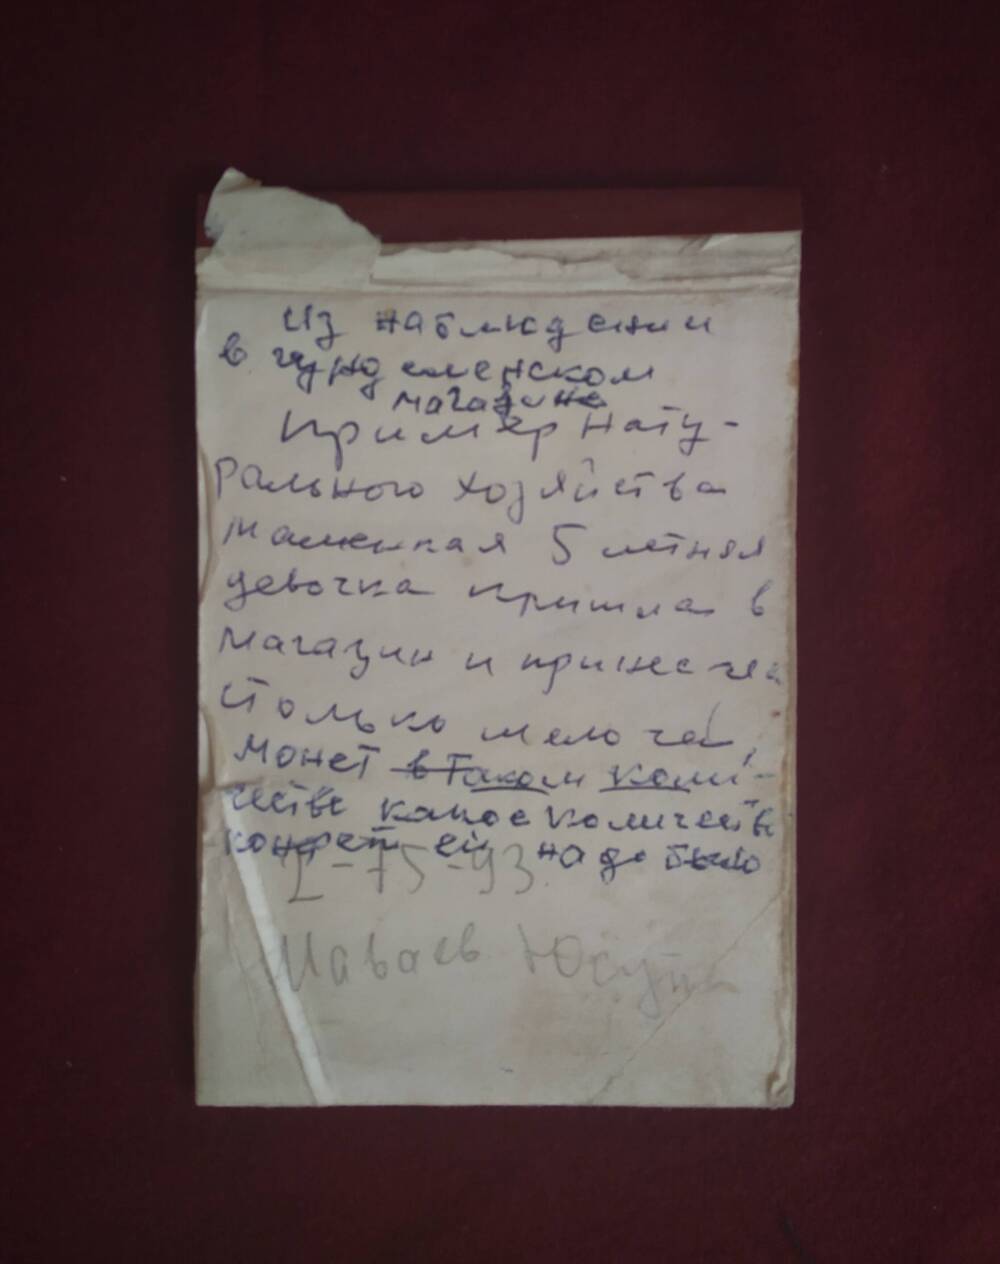 Из наблюдений
в чурд еленском
магазине
Пример нату-
рального хозяйства
маленкая 5 летняя
девочка пришла в
магазин и принесла
столько мелочей,
монет в таком коли-
честве какое количеств
конфет ей надо было
2-75-93
Маваев Юсуп